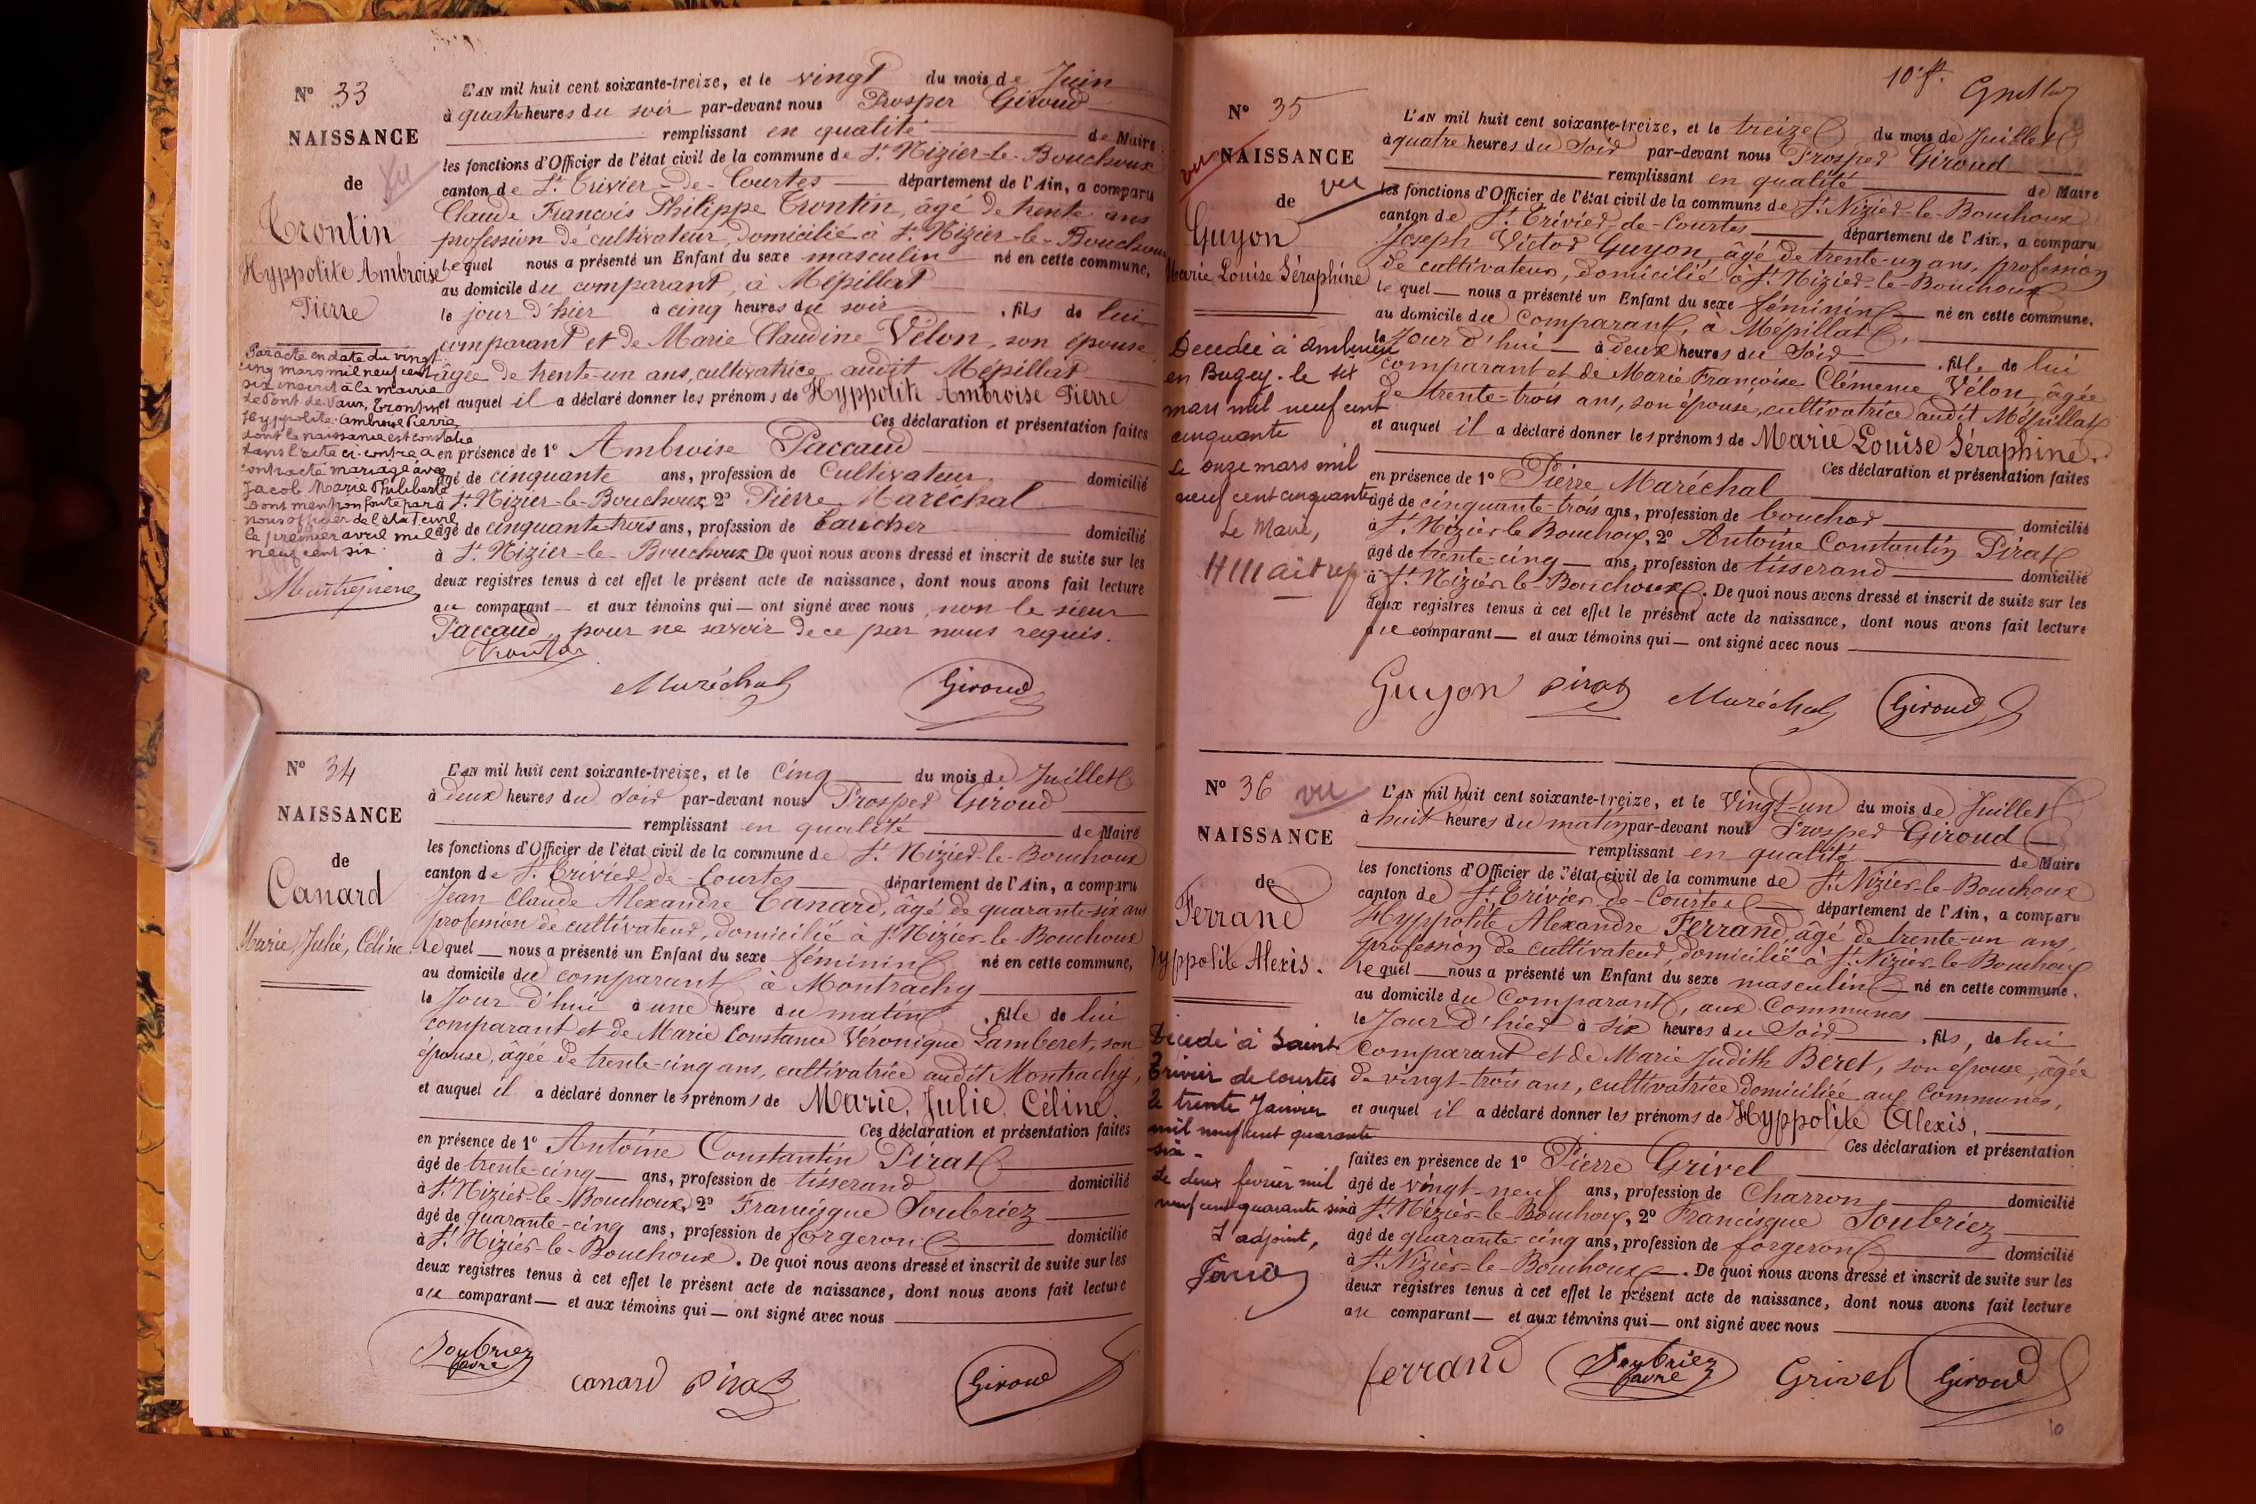 N° 33
NAISSANCE
de
Trontin
Hyppolite Ambroise
Pierre
Par acte en date du vingt
cinq mars mil neuf cent
six inscrit à la mairie
de Pont de Vaux, Trontin
Hyppolite Ambroise Pierre
dont la naissance est constatée
dans l'acte ci-contre a
contracté mariage avec
Jacob Marie Philiberte
Dont mention faite par
nous officier de l'état civil
le premier avril mil
neuf cent six.
L'AN mil huit cent soixante-treize, et le vingt du mois de Juin
à quatre heures du soir par-devant nous Prosper Giroud
remplissant en qualité de Maire
les fonctions d'Officier de l'état civil de la commune de St Nizier-le-Bouchoux
canton de St Trivier-de-Courtes département de l'Ain, a comparu
Claude François Philippe Trontin, âgé de trente ans
profession de cultivateur, domicilié à St Nizier-le-Bouchoux
lequel nous a présenté un Enfant du sexe masculin né en cette commune,
au domicile du comparant, à Mépillat
le jour d'hier à cinq heures du soir, fils de lui
comparant et de Marie Claudine Vélon, son épouse,
âgée de trente-un ans, cultivatrice audit Mépillat
et auquel il a déclaré donner les prénoms de Hyppolite Ambroise Pierre
Ces déclaration et présentation faites
en présence de 1° Ambroise Paccaud
âgé de cinquante ans, profession de Cultivateur domicilié
à St Nizier-le-Bouchoux, 2° Pierre Maréchal
âgé de cinquante trois ans, profession de boucher domicilié
à St Nizier-le-Bouchoux De quoi nous avons dressé et inscrit de suite sur les
deux registres tenus à cet effet le présent acte de naissance, dont nous avons fait lecture
au comparant et aux témoins qui ont signé avec nous, non le sieur
Paccaud, pour ne savoir de ce par nous requis.
Trontin
Maréchal Giroud
N° 34
NAISSANCE
de
Canard
Marie, Julie, Céline.
L'AN mil huit cent soixante-treize, et le cinq du mois de Juillet
à deux heures du soir par-devant nous Prosper Giroud
remplissant en qualité de Maire
les fonctions d'Officier de l'état civil de la commune de St Nizier-le-Bouchoux
canton de St Trivier de Courtes département de l'Ain, a comparu
Jean Claude Alexandre Canard, âgé de quarante-six ans
profession de cultivateur, domicilié à St Nizier-le-Bouchoux
lequel nous a présenté un Enfant du sexe féminin né en cette commune,
au domicile du comparant à Montrachy
le Jour d'hui à une heure du matin, fille de lui
comparant et de Marie Constance Véronique Lamberet, son
épouse, âgée de trente-cinq ans, cultivatrice audit Montrachy,
et auquel il a déclaré donner les prénoms de Marie, Julie, Céline.
Ces déclaration et présentation faites
en présence de 1° Antoine Constantin Pirat
âgé de trente-cinq ans, profession de tisserand domicilié
à St Nizier-le-Bouchoux, 2° Francisque Soubriez
âgé de quarante-cinq ans, profession de forgeron domicilié
à St Nizier-le-Bouchoux. De quoi nous avons dressé et inscrit de suite sur les
deux registres tenus à cet effet le présent acte de naissance, dont nous avons fait lecture
au comparant et aux témoins qui ont signé avec nous
Soubriez
favre
canard Pirat Giroud
10e ft.
N° 35
vu
NAISSANCE
vu
de
Guyon
Marie Louise Séraphine
Décédée à Ambérieu
en Bugey. le six
mars mil neuf cent
cinquante
Le onze mars mil
neuf cent cinquante
Le Maire,
L'AN mil huit cent soixante-treize, et le treize du mois de Juillet
à quatre heures du Soir par-devant nous Prosper Giroud
remplissant en qualité de Maire
les fonctions d'Officier de l'état civil de la commune de St Nizier-le-Bouchoux
canton de St Trivier-de-Courtes département de l'Ain, a comparu
Joseph Victor Guyon, âgé de trente-un ans, profession
de cultivateur, domicilié à St Nizier-le-Bouchoux
lequel nous a présenté un Enfant du sexe féminin né en cette commune.
au domicile du comparant, à Mépillat,
le Jour d'hui à deux heures du Soir, fille de lui
comparant et de Marie Françoise Clémence Vélon, âgée
de trente-trois ans, son épouse, cultivatrice audit Mépillat
et auquel il a déclaré donner les prénoms de Marie Louise Séraphine.
Ces déclaration et présentation faites
en présence de 1° Pierre Maréchal
âgé de cinquante-trois ans, profession de boucher domicilié
à St Nizier-le-Bouchoux, 2° Antoine Constantin Pirat
âgé de trente-cinq ans, profession de tisserand domicilié
à St Nizier-le-Bouchoux. De quoi nous avons dressé et inscrit de suite sur les
deux registres tenus à cet effet le présent acte de naissance, dont nous avons fait lecture
au comparant et aux témoins qui ont signé avec nous
Guyon Pirat Maréchal Giroud
N° 36 vu
NAISSANCE
de
Ferrand
Hyppolite Alexis.
Décédé à Saint
Trivier de Courtes
le trente Janvier
mil neuf cent quarante
six.
Le deux février mil
neuf cent quarante six
L'adjoint,
L'AN mil huit cent soixante-treize, et le Vingt-un du mois de Juillet
à huit heures du matin par-devant nous Prosper Giroud
remplissant en qualité de Maire
les fonctions d'Officier de l'état civil de la commune de St Nizier-le-Bouchoux
canton de St Trivier-de-Courtes département de l'Ain, a comparu
Hyppolite Alexandre Ferrand, âgé de trente-un ans,
profession de cultivateur, domicilié à St Nizier-le-Bouchoux
lequel nous a présenté un Enfant du sexe masculin né en cette commune,
au domicile du Comparant, aux Communes
le Jour d'hier à six heures du Soir, fils, de lui
Comparant et de Marie Judith Beret, son épouse, âgée
de vingt-trois ans, cultivatrice domiciliée aux Communes,
et auquel il a déclaré donner les prénoms de Hyppolite Alexis.
Ces déclaration et présentation
faites en présence de 1° Pierre Grivel
âgé de vingt-neuf ans, profession de Charron domicilié
à St Nizier-le-Bouchoux, 2° Francisque Soubriez
âgé de quarante-cinq ans, profession de forgeron domicilié
à St Nizier-le-Bouchoux. De quoi nous avons dressé et inscrit de suite sur les
deux registres tenus à cet effet le présent acte de naissance, dont nous avons fait lecture
au comparant et aux témoins qui ont signé avec nous
ferrand Soubriez
favre Grivel Giroud
10